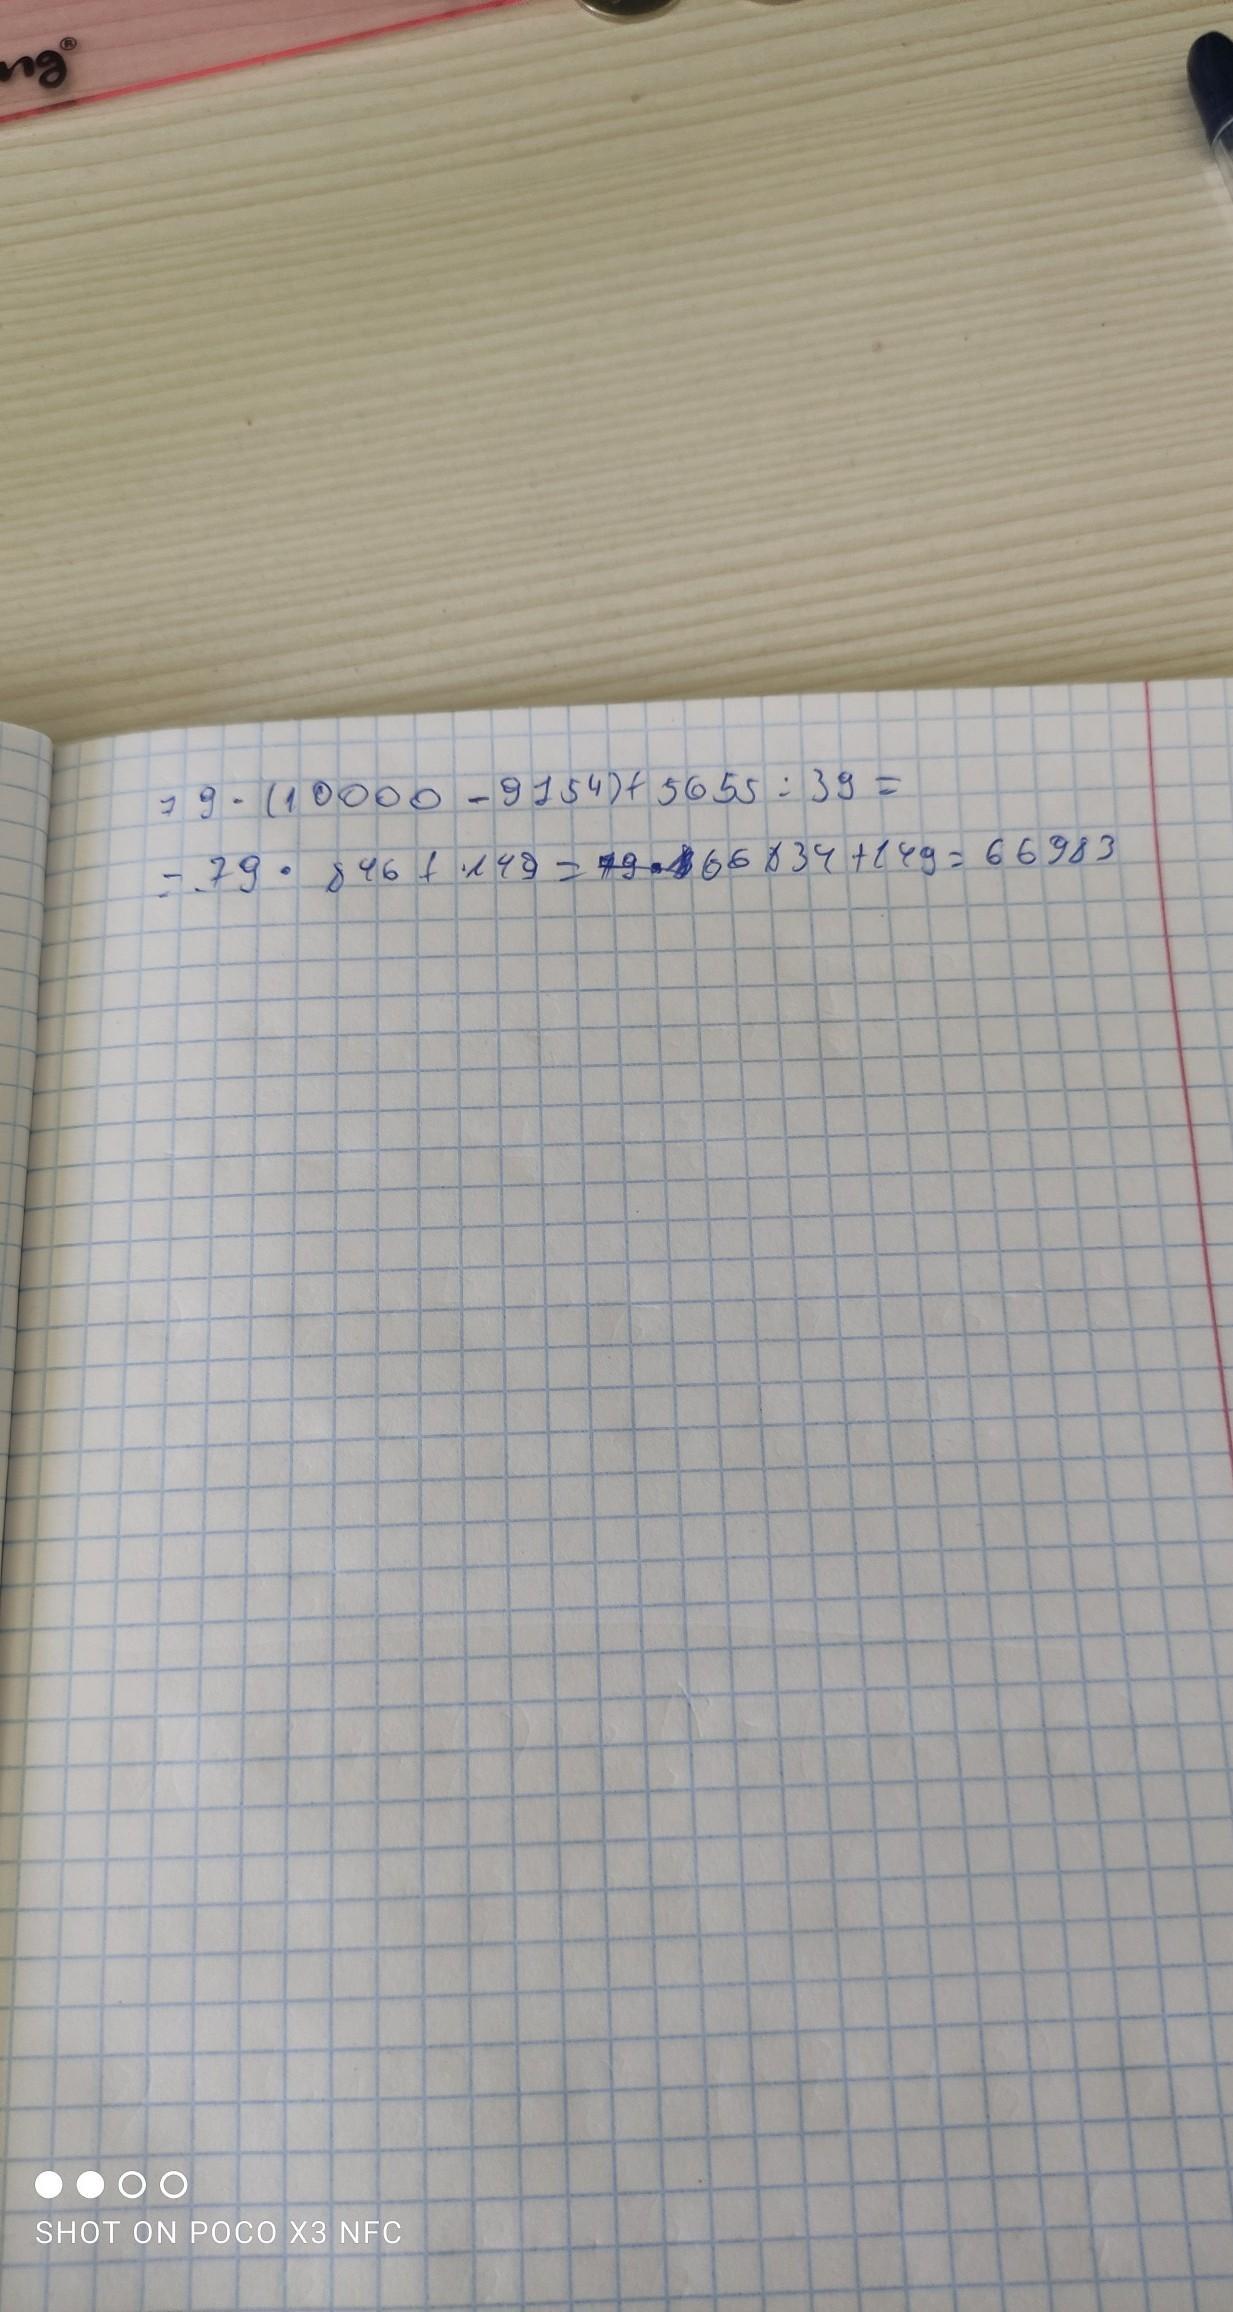 ng®
79·(10000-9154)+5655:39=
=79·846+149=66834+149=66983
SHOT ON POCO X3 NFC